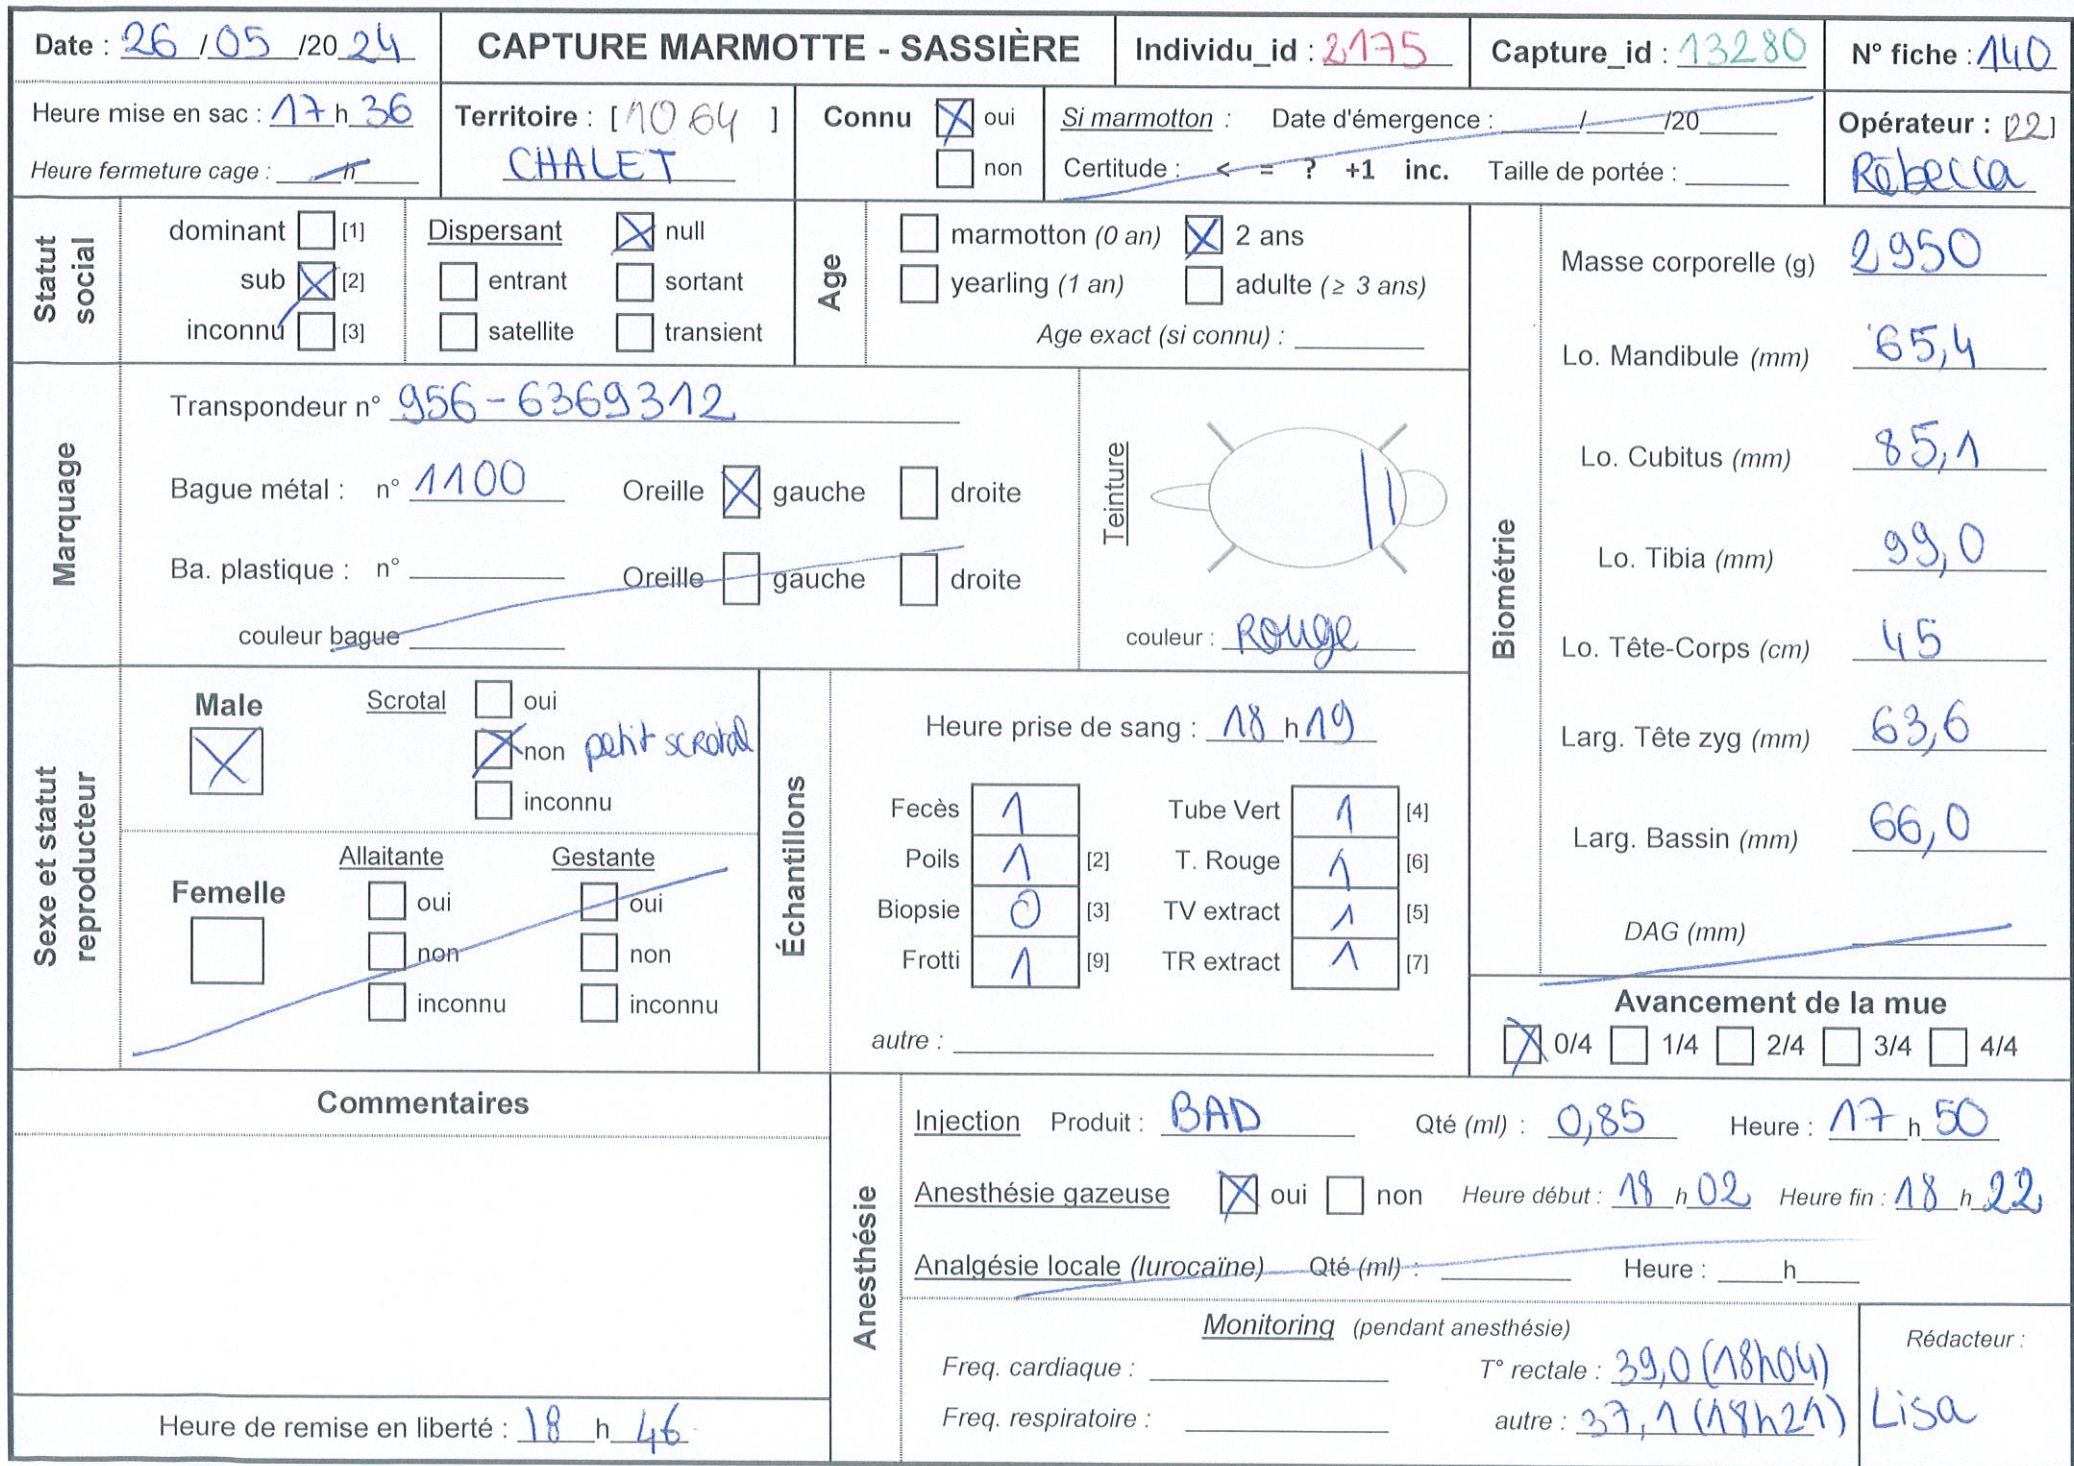 Date : 26 / 05 /20 24 CAPTURE MARMOTTE - SASSIÈRE Individu_id : 2175 Capture_id : 13280 N° fiche : 140
Heure mise en sac : 17 h 36 Territoire : [ 1064 ] Connu oui Si marmotton : Date d'émergence : ___/___/20___ Opérateur : [22]
Heure fermeture cage : ___h___ CHALET non Certitude : < = ? +1 inc. Taille de portée : ___ Rebecca
Statut social
dominant [1] Dispersant null
sub [2] entrant sortant
inconnu [3] satellite transient
Age
marmotton (0 an) 2 ans
yearling (1 an) adulte (≥ 3 ans)
Age exact (si connu) : ___
Marquage
Transpondeur n° 956-6369312
Bague métal : n° 1100 Oreille gauche droite
Ba. plastique : n° ___ Oreille gauche droite
couleur bague ___
Teinture
couleur : Rouge
Biométrie
Masse corporelle (g) 2950
Lo. Mandibule (mm) 65,4
Lo. Cubitus (mm) 85,1
Lo. Tibia (mm) 99,0
Lo. Tête-Corps (cm) 45
Larg. Tête zyg (mm) 63,6
Larg. Bassin (mm) 66,0
DAG (mm) ___
Sexe et statut reproducteur
Male Scrotal oui
non petit scrotal
inconnu
Femelle Allaitante Gestante
oui oui
non non
inconnu inconnu
Échantillons
Heure prise de sang : 18 h 19
Fecès 1 Tube Vert 1 [4]
Poils 1 [2] T. Rouge 1 [6]
Biopsie 0 [3] TV extract 1 [5]
Frotti 1 [9] TR extract 1 [7]
autre : ___
Avancement de la mue
0/4 1/4 2/4 3/4 4/4
Commentaires
Heure de remise en liberté : 18 h 46
Anesthésie
Injection Produit : BAD Qté (ml) : 0,85 Heure : 17 h 50
Anesthésie gazeuse oui non Heure début : 18 h 02 Heure fin : 18 h 22
Analgésie locale (lurocaïne) Qté (ml) : ___ Heure : ___h___
Monitoring (pendant anesthésie)
Freq. cardiaque : ___ T° rectale : 39,0 (18h04)
Freq. respiratoire : ___ autre : 37,1 (18h21)
Rédacteur :
Lisa